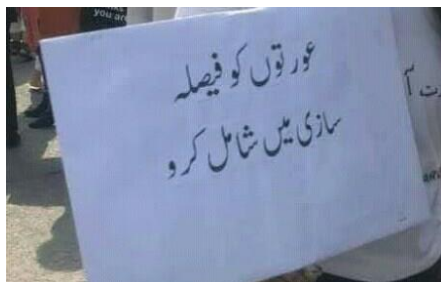 you are
عورتوں کو فیصلہ
سازی میں شامل کرو